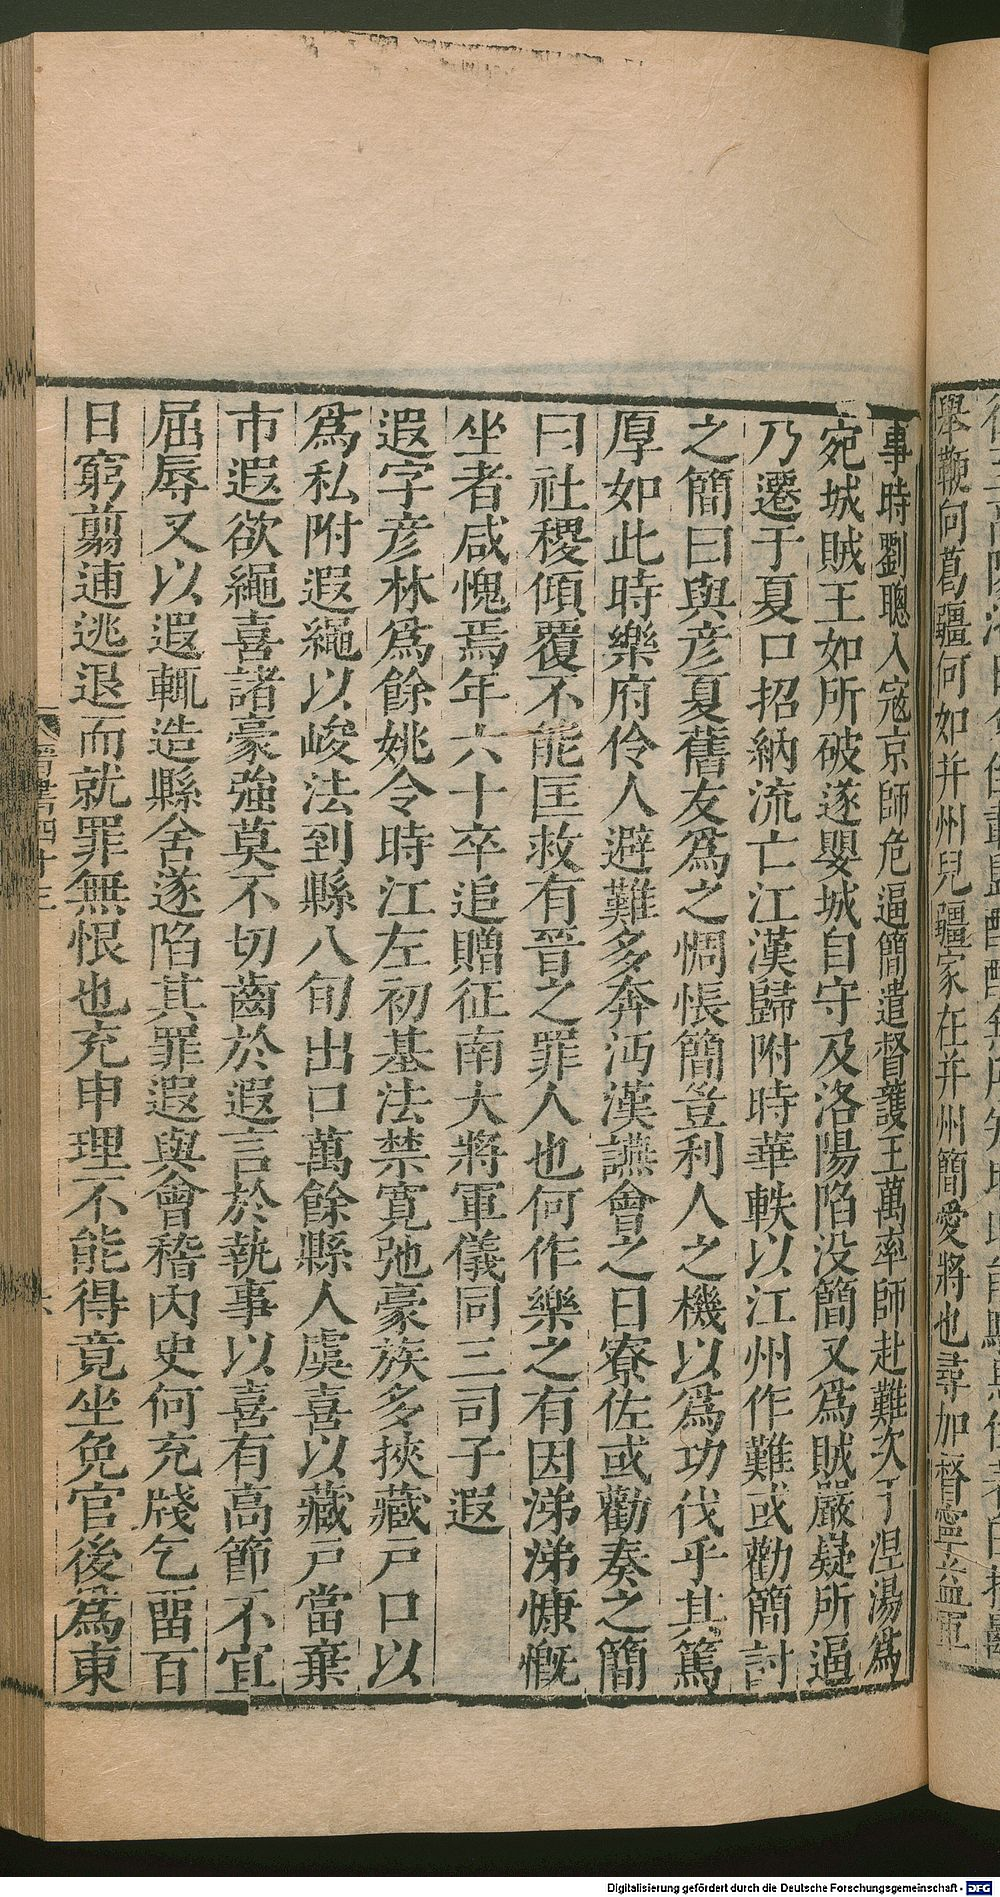 舉鞭向葛疆何如并州兒疆家在并州簡愛將也尋加督寧益軍
事時劉聰入寇京師危逼簡遣督護王萬率師赴難次于涅湯爲
宛城賊王如所破遂嬰城自守及洛陽陷没簡又爲賊嚴嶷所逼
乃遷于夏口招納流亡江漢歸附時華軼以江州作難或勸簡討
之簡曰與彦夏舊友爲之惆悵簡豈利人之機以爲功伐乎其篤
厚如此時樂府伶人避難多奔沔漢讌會之日寮佐或勸奏之簡
曰社稷傾覆不能匡救有晉之罪人也何作樂之有因涕涕慷慨
坐者咸愧焉年六十卒追贈征南大將軍儀同三司子遐
遐字彦林爲餘姚令時江左初基法禁寬弛豪族多挾藏戸口以
爲私附遐繩以峻法到縣八旬出口萬餘縣人虞喜以藏戸當棄
市遐欲繩喜諸豪強莫不切齒於遐言於執事以喜有高節不宜
屈辱又以遐輒造縣舍遂陷其罪遐與會稽内史何充牋乞畱百
日窮翦逋逃退而就罪無恨也充申理不能得竟坐免官後爲東
晋書四十三
六
Digitalisierung gefördert durch die Deutsche Forschungsgemeinschaft - DFG